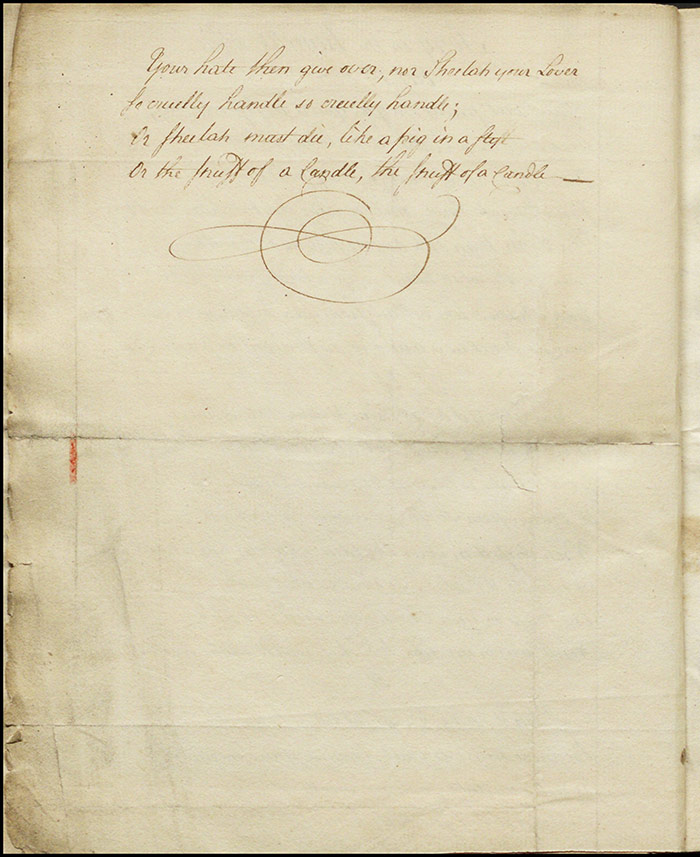 Your hate then give over, nor Sheelah your Lover
So cruelly handle so cruelly handle;
Or Sheelah must die, like a pig in a stye
Or the snuff of a Candle, the snuff of a Candle —